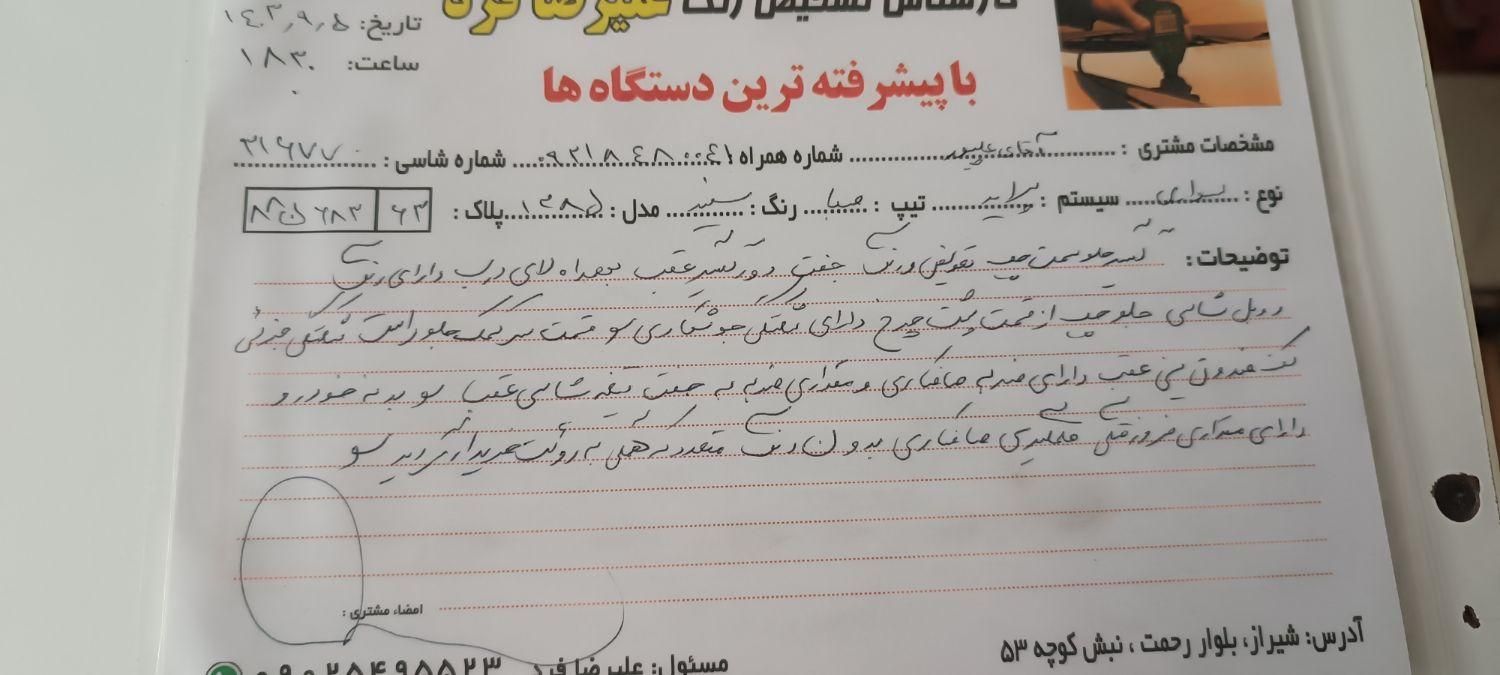 کارشناس تشخیص رنگ علیرضا فرد
تاریخ: ۱۴۰۳٫۹٫۵
با پیشرفته ترین دستگاه ها
ساعت: ۱۸۳۰
مشخصات مشتری : آقای شماره همراه ۰۹۲۱۸۴۸۰۰۴۱ شماره شاسی : ۳۱۶۷۷۰
نوع : سواری سیستم : پراید تیپ : صبا رنگ : سفید مدل : ۱۳۸۵ پلاک : ۶۳ ۶۸۳
توضیحات : گلگیر جلو سمت چپ تعویض و رنگ جفت دور گلگیر عقب بهمراه لای درب دارای رنگ
دوبل شاسی جلو چپ از قسمت پشت چرخ دارای جوشکاری و قسمت سر جلو راست جزئی
کف صندوق پنی عقب دارای ضربه صافکاری و مقداری ضربه به جفت شاسی عقب و بدنه خودرو
دارای مقداری فرورفتگی صافکاری بدون رنگ متعدد که همگی به رؤیت خریدار گردید
امضاء مشتری :
آدرس: شیراز، بلوار رحمت ، نبش کوچه ۵۳
مسئول: علیرضا فرد ۰۹۰۲۵۴۹۵۵۲۳